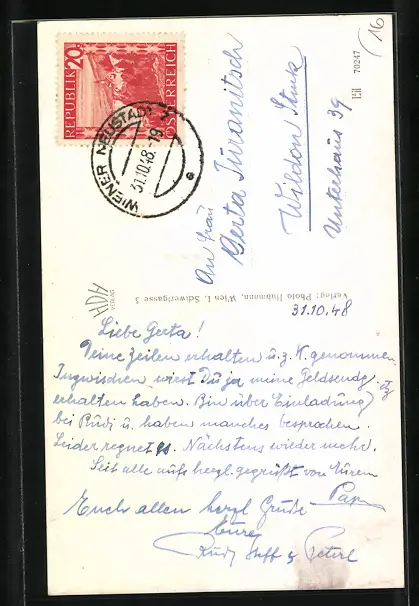 16
REPUBLIK 20g ÖSTERREICH
WIENER NEUSTADT
31.10.48.-19
An Frau
Gerta Turanitsch
Wildon Stmk
Unterhaus 39
70247
Verlag: Photo Hubmann, Wien I. Schwertgasse 3
31.10.48
Liebe Gerta!
Deine Zeilen erhalten u. z. K. genommen.
Inzwischen wirst Du ja meine Geldsendg.
erhalten haben. Bin über Einladung
bei Rudi u. haben manches besprochen.
Leider regnet es. Nächstens wieder mehr.
Seit alle aufs herzl. gegrüßt von Eurem
Papa
Euch allen herzl Grüße
Eure
Rudi Steff u Peterl